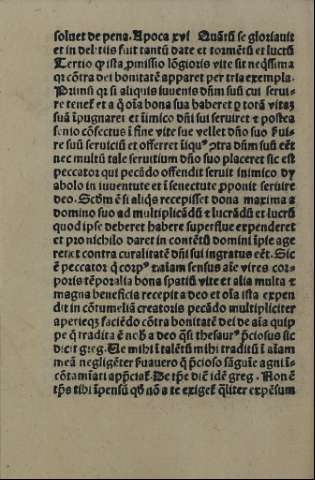 soluet de pena. Apoca xvi Quãtũ se gloriauit
et in delitiis fuit tantũ date et tormẽtũ et luctũ
Tertio qꝛ ista ꝓmissio lõgioris vite sit neqͥssima
qꝛ cõtra dei bonitatẽ apparet per tria exempla.
Primũ qꝛ si aliquis iuuenis dñm suũ cui serui-
re tenet̃ et a q̊ oĩa bona sua haberet ꝑ totã vitaʒ
suã ĩpugnaret et ĩimico dñi sui seruiret et postea
senio cõfectus ĩ fine vite sue vellet dño suo ßui-
re suũ seruiciũ et offerret ĩiqͥtꝰ ꝯtra dñm suũ eẽt
nec multũ tale seruitium dño suo placeret sic est
peccator qui peccãdo offendit seruit inimico dy
abolo in iuuentute et ĩ senectute ꝓponit seruire
deo. Scd̃m ẽ si aliq̃s recepisset dona maxima a
domino suo ad multiplicãdũ ⁊ lucrãdũ et luctũ
quod ipse deberet habere superflue expenderet
et pro nichilo daret in contẽtũ domini ip̃ĩe age
ret⁊t contra curalitatẽ dñi sui ingratus eẽt. Sic
ẽ peccator q̃ corpꝰ ⁊aĩam sensus aĩe vires cor-
poris tẽporalia bona spatiũ vite et alia multa ⁊
magna beneficia recepit a deo et oĩa ista expen
dit in cõtumeliã creatoris peccãdo multipliciter
aperteqʒ faciẽdo cõtra bonitatẽ dei de aĩa quip
pe q̃ tradita ẽ nob̃ a deo qͣsi thesaurꝰ p̃ciosus sic
dicit greg. Ue mihi ĩ talẽtũ mihi traditũ ĩ aĩam
meã negligẽter ßuauero q̃ p̃cioso sãguĩe agni ĩ-
cõtamĩati app̃ciat̃. De tꝑe diẽ idẽ greg. Non ẽ
tp̃s tibi ĩpensũ qđ nõ a te exiget̃ qͣliter expẽsum